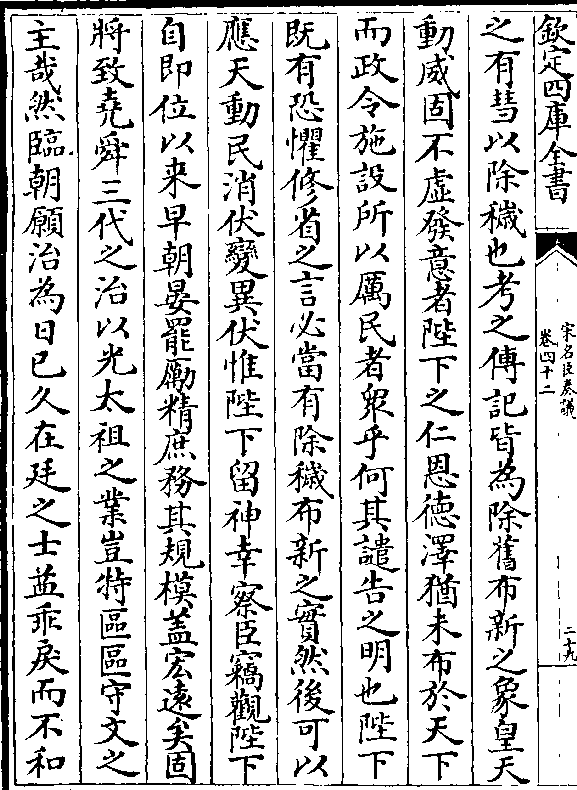 欽定四庫全書
宋名臣奏議
卷四十二
二十九
之有彗以除穢也考之傳記皆為除舊布新之象皇天
動威固不虛發意者陛下之仁恩德澤猶未布於天下
而政令施設所以厲民者衆乎何其譴告之明也陛下
既有恐懼修省之言必當有除穢布新之實然後可以
應天動民消伏變異伏惟陛下留神幸察臣竊觀陛下
自即位以来早朝晏罷勵精庶務其規模葢宏遠矣固
將致堯舜三代之治以光太祖之業豈特區區守文之
主哉然臨朝願治為日已久在廷之士葢乖戾而不和